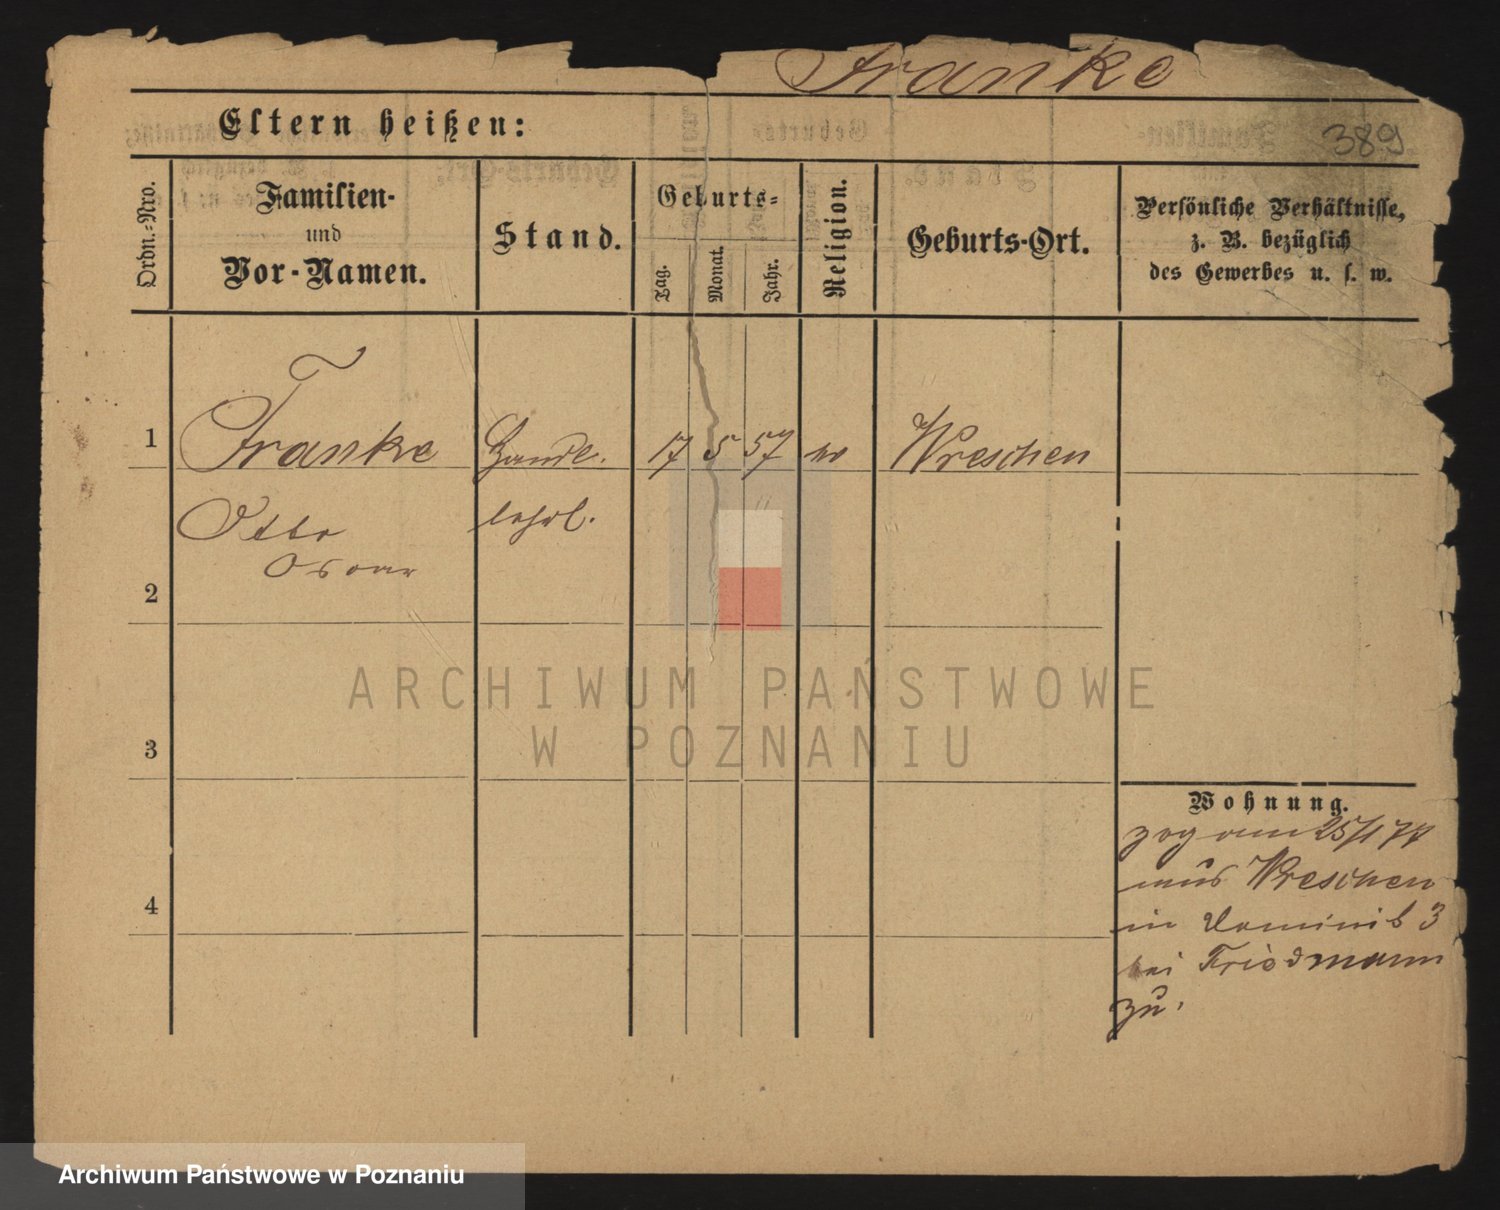 Franke
389
Eltern heißen:
Ordn.-Nro.
Familien-
und
Vor-Namen.
Stand.
Geburts-
Tag.
Monat.
Jahr.
Religion.
Geburts-Ort.
Persönliche Verhältnisse,
z. B. bezüglich
des Gewerbes u. s. w.
1 Franke 17 5 57 Wreschen
Otto lehrl.
Oscar
2
3
4
Wohnung.
zog am 25/1 77
aus Wreschen
in Dominik 3
bei Friedmann
zu.
ARCHIWUM PAŃSTWOWE
W POZNANIU
Archiwum Państwowe w Poznaniu